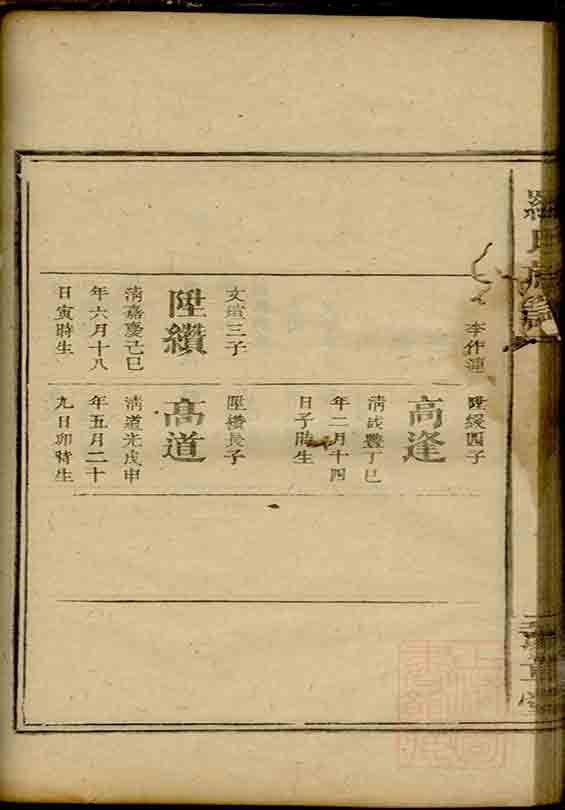 羅氏族譜
李作連
陞綬四子
高逢
清咸豐丁巳
年二月十四
日子時生
文瑄三子
陞纘
清嘉慶己巳
年六月十八
日寅時生
陞纘長子
高道
清道光戊申
年五月二十
九日卯時生